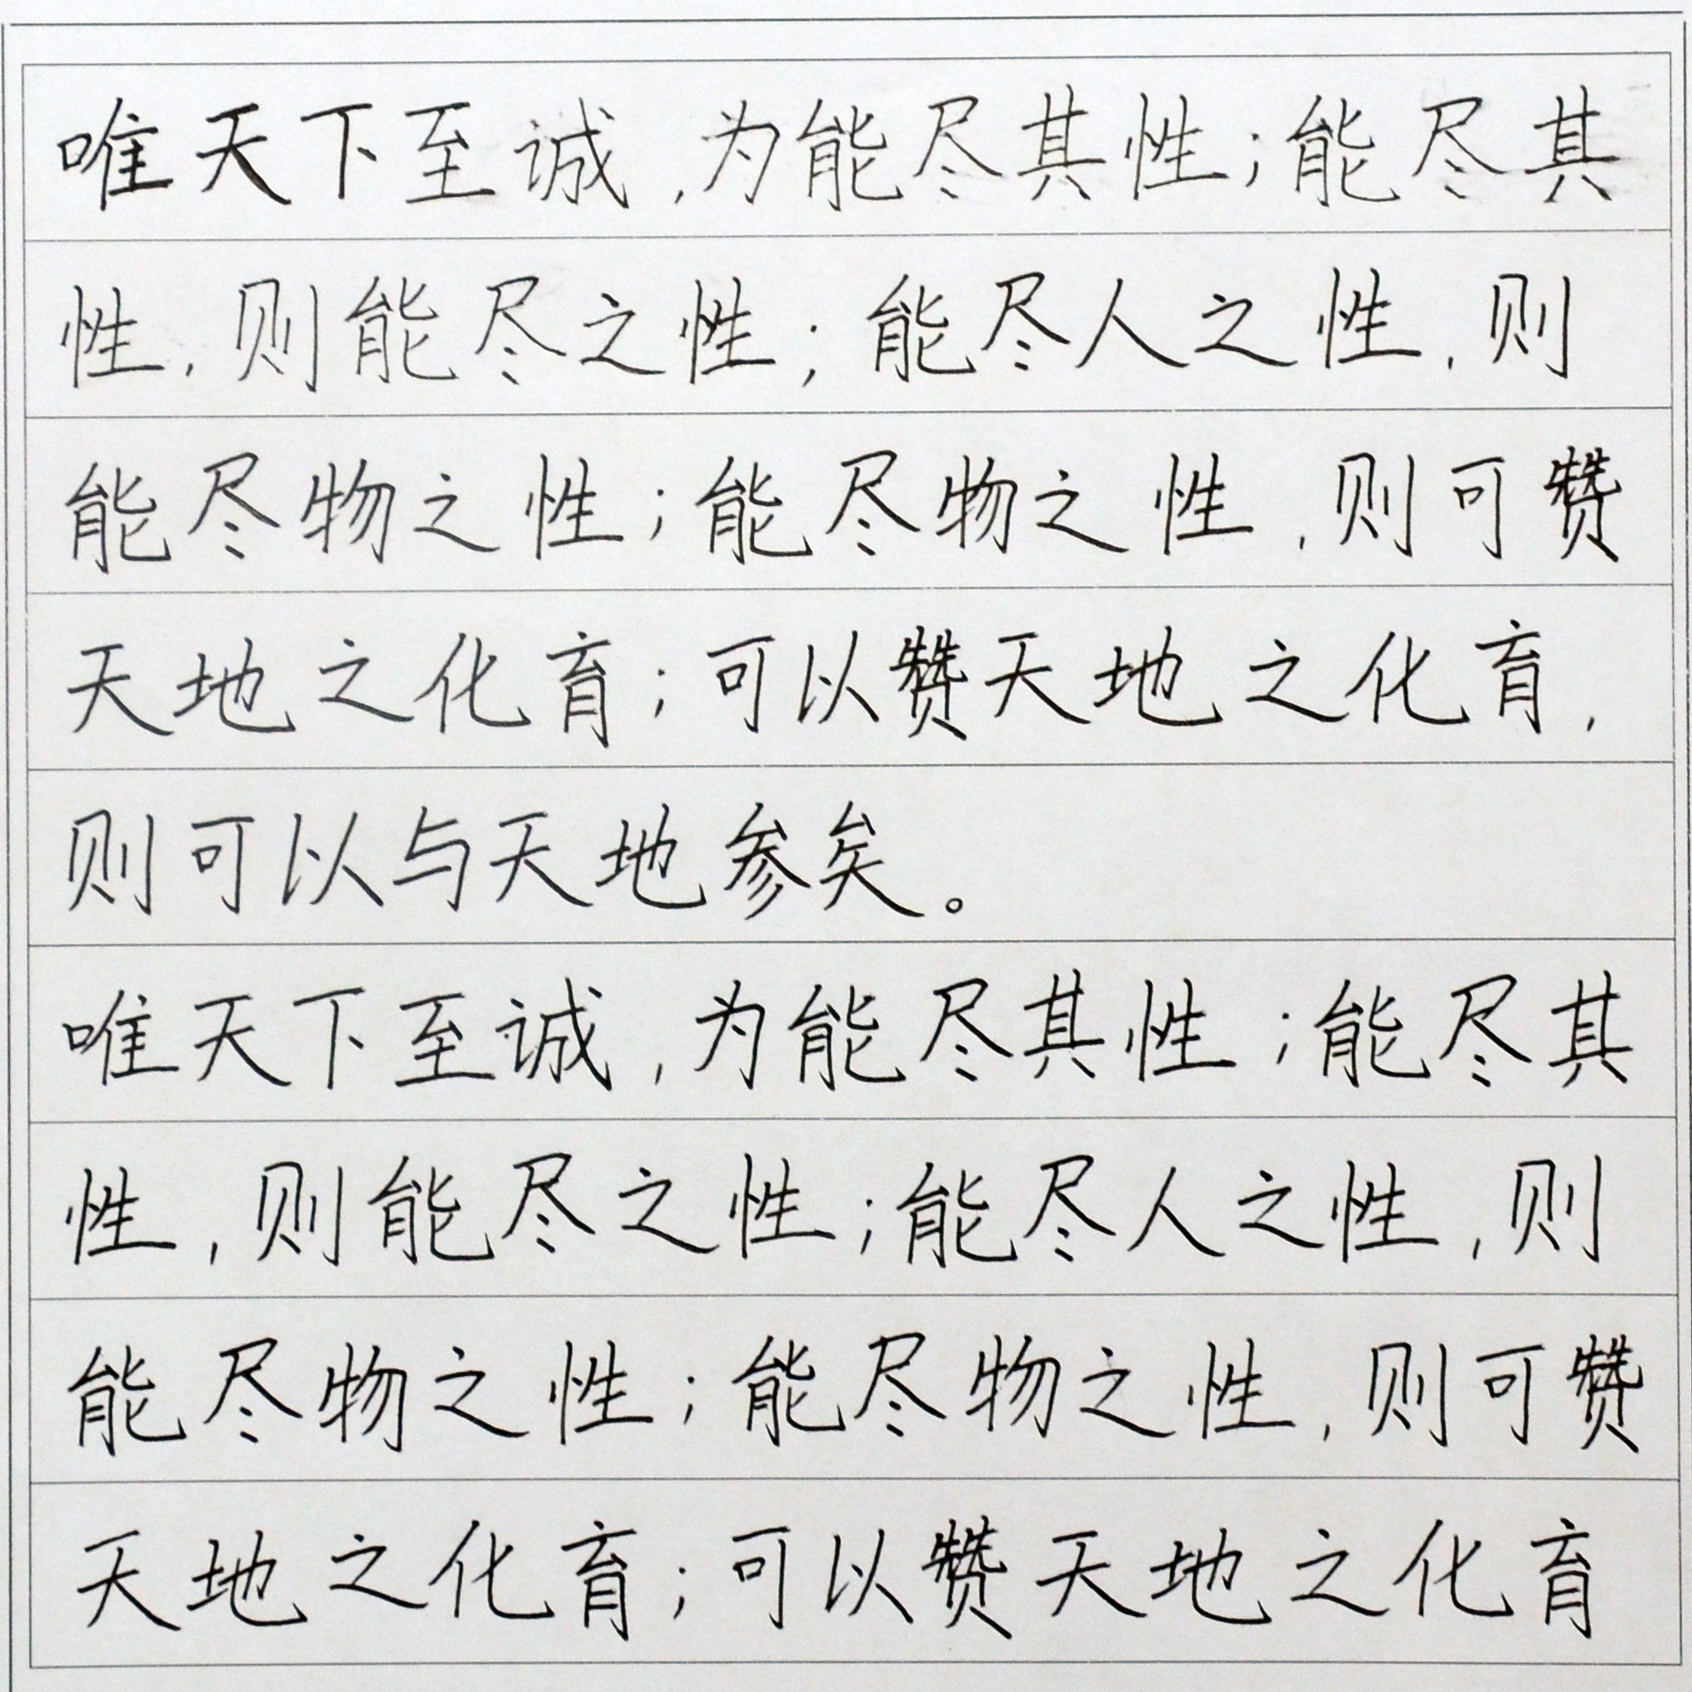 唯天下至诚,为能尽其性;能尽其
性,则能尽之性;能尽人之性,则
能尽物之性;能尽物之性,则可赞
天地之化育;可以赞天地之化育,
则可以与天地参矣。
唯天下至诚,为能尽其性;能尽其
性,则能尽之性;能尽人之性,则
能尽物之性;能尽物之性,则可赞
天地之化育;可以赞天地之化育